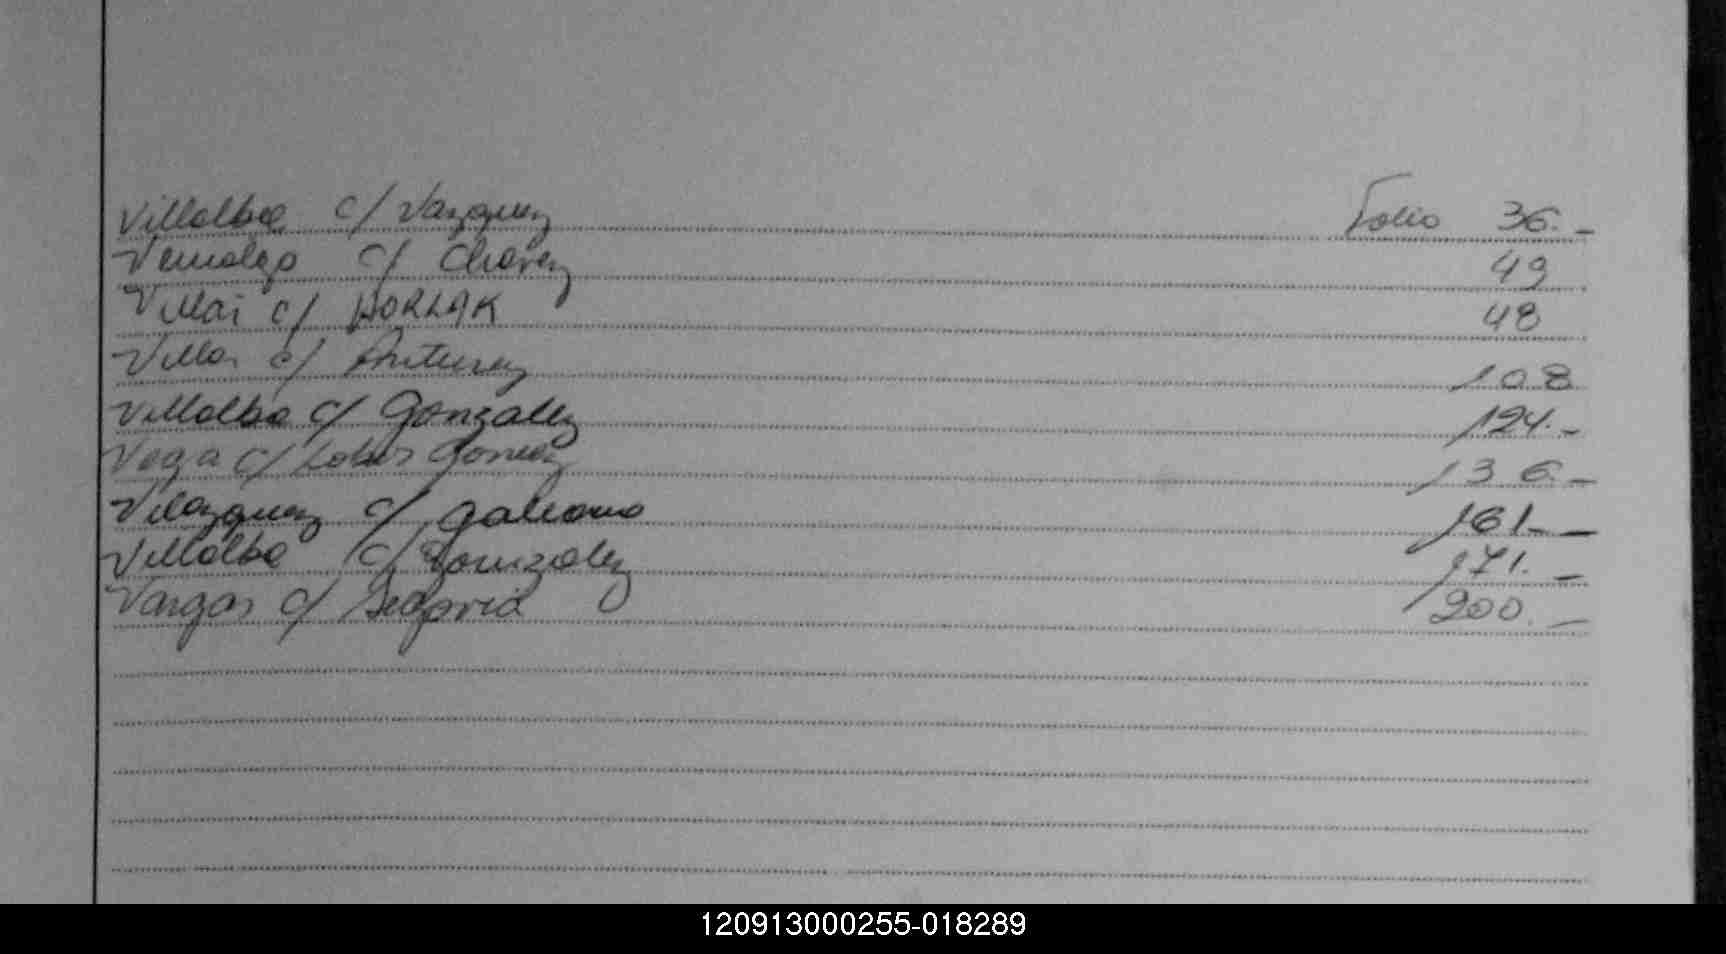 Villalba c/ Vazquez Folio 36.-
c/ Chavez 49
Villar c/ HORLAK 48
Villar c/ Antunez 108
Villalba c/ Gonzalez 124.-
Vega c/ Gomez 136.-
Velazquez c/ Galeano 161.-
Villalba c/ Gonzalez 171.-
Vargas c/ Segovia 200.-
120913000255-018289